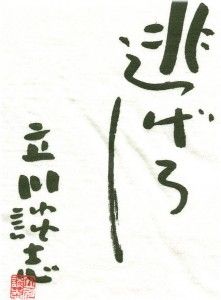 逃げろ
立川談志